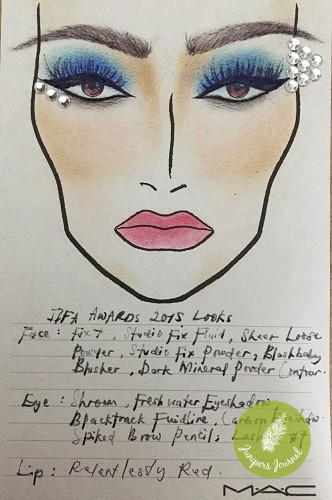 IIFA AWARDS 2015 LOOKS
Face : Fix+, Studio Fix Fluid, Sheer Loose
Powder, Studio Fix Powder, Blushbaby
Blusher, Dark Mineral Powder Contour.
Eye : Shroom, Freshwater Eyeshadow
Blacktrack Fluidline, Carbon
Spiked Brow Pencil, Lash
Lip : Relentlessly Red.
MAC
Junipers Journal